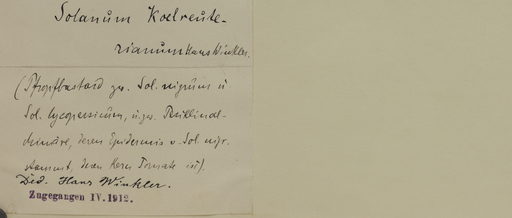 Solanum Koelreute-
rianum Hans Winkler.
(Pfropfbastard zw. Sol. nigrum u
Sol. lycopersicum, u. zw. Periklinal-
chimäre, deren Epidermis v. Sol. nigr.
stammt, deren Kern Tomate ist).
Ded. Hans Winkler.
Zugegangen IV. 1912.